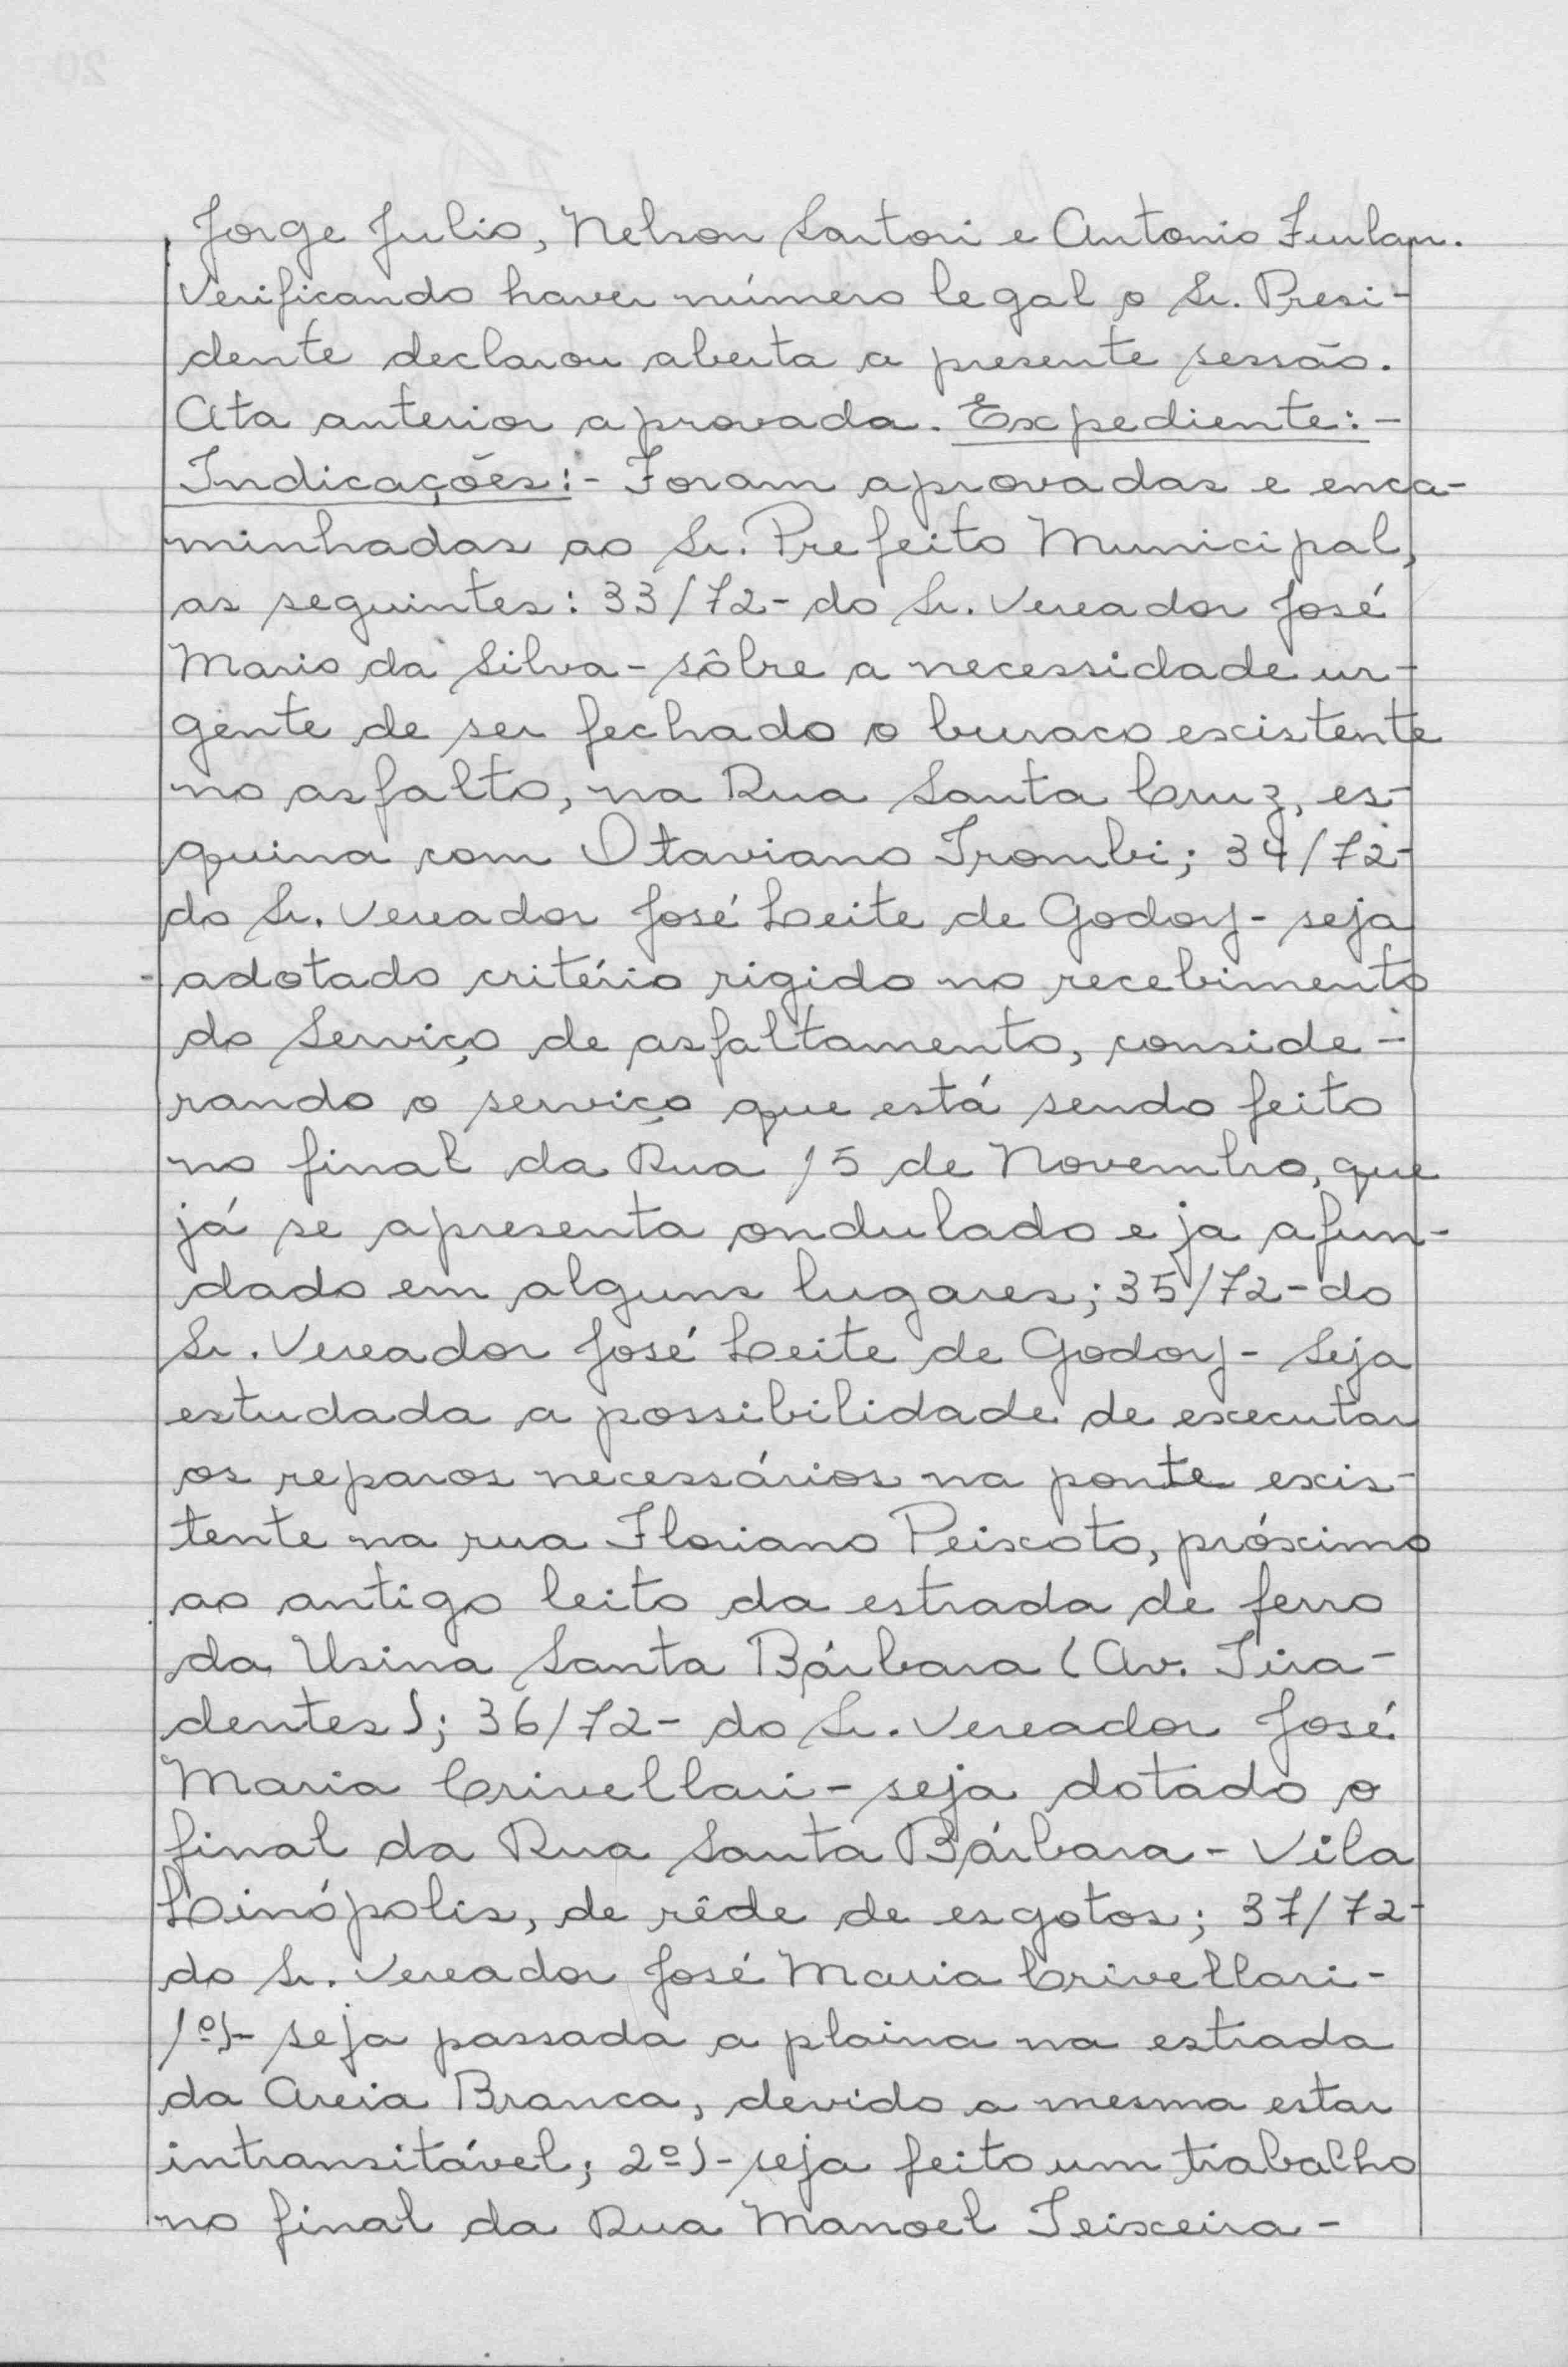 Jorge Julio, Nelson Sartori e Antonio Furlan.
Verificando haver número legal o Sr. Presi-
dente declarou aberta a presente sessão.
Ata anterior aprovada. Expediente:-
Indicações:- Foram aprovadas e enca-
minhadas ao Sr. Prefeito Municipal,
as seguintes: 33/72- do Sr. Vereador José
Mario da Silva - sôbre a necessidade ur-
gente de ser fechado o buraco existente
no asfalto, na Rua Santa Cruz, es-
quina com Otaviano Trombi; 34/72-
do Sr. Vereador José Leite de Godoy - seja
adotado critério rigido no recebimento
do Serviço de asfaltamento, conside-
rando o serviço que está sendo feito
no final da Rua 15 de Novembro, que
já se apresenta ondulado e ja afun-
dado em alguns lugares; 35/72- do
Sr. Vereador José Leite de Godoy - Seja
estudada a possibilidade de executar
os reparos necessários na ponte exis-
tente na rua Floriano Peixoto, próximo
ao antigo leito da estrada de ferro
da Usina Santa Bárbara (Av. Tira-
dentes); 36/72- do Sr. Vereador José
Maria Crivellari - seja dotado o
final da Rua Santa Bárbara - Vila
Linópolis, de rêde de esgotos; 37/72-
do Sr. Vereador José Maria Crivellari -
1º)- seja passada a plaina na estrada
da Areia Branca, devido a mesma estar
intransitável; 2º)- seja feito um trabalho
no final da Rua Manoel Teixeira -